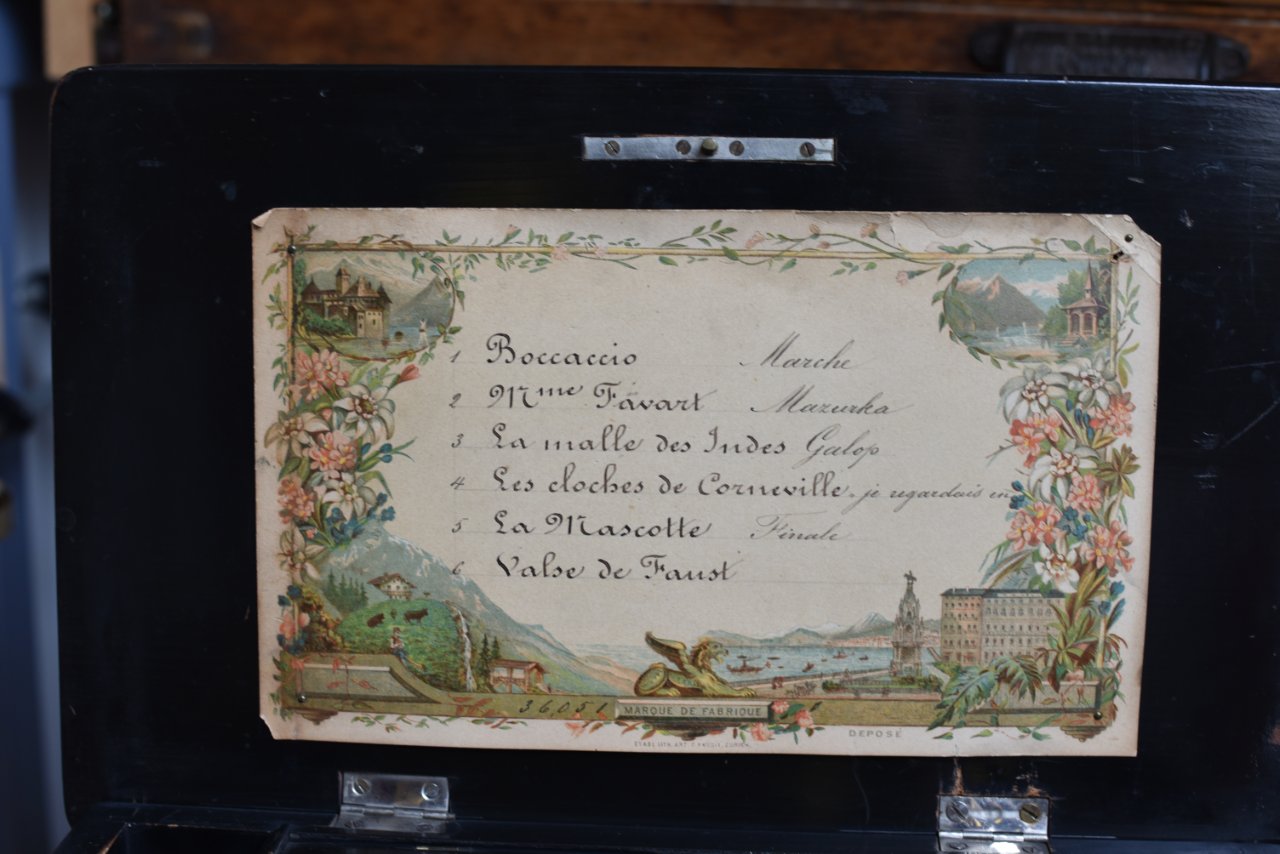 1 Boccaccio Marche
2 Mme Favart Mazurka
3 La malle des Indes Galop
4 Les cloches de Corneville. je regardais en
5 La Mascotte Finale
6 Valse de Faust
36051 MARQUE DE FABRIQUE
DEPOSÉ
ETABL. LITH. ART. ZÜRICH.